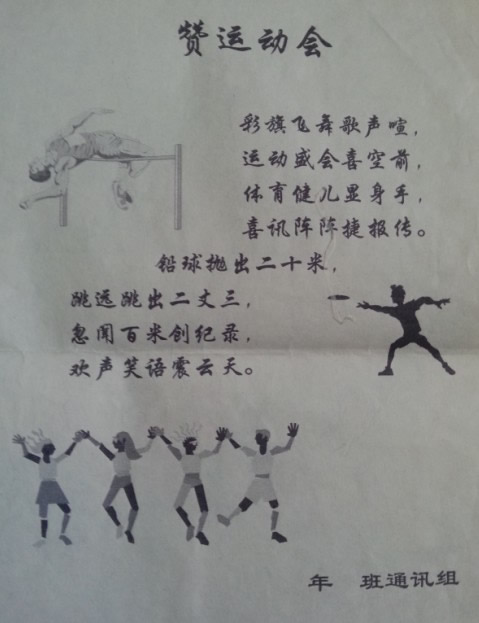 赞运动会
彩旗飞舞歌声喧，
运动盛会喜空前，
体育健儿显身手，
喜讯阵阵捷报传。
铅球抛出二十米，
跳远跳出二丈三，
忽闻百米创纪录，
欢声笑语震云天。
年 班通讯组